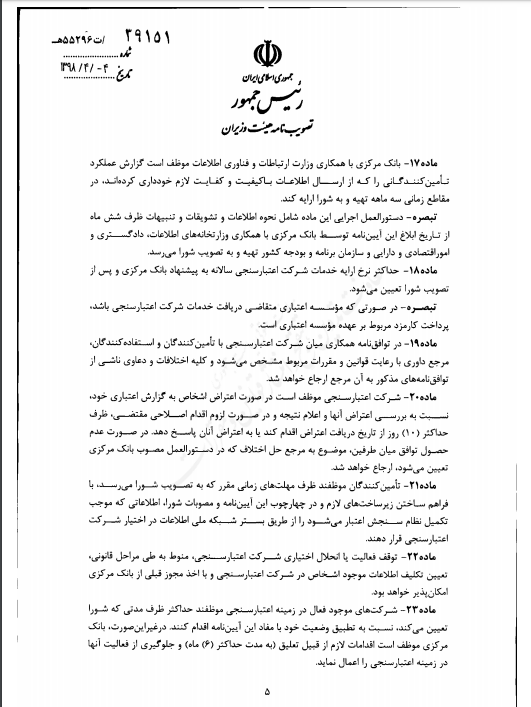 ۳۹۱۵۱ /ت۵۵۲۹۶هـ
شماره
تاریخ ۱۳۹۸/۴/۰۴
جمهوری اسلامی ایران
رئیس جمهور
تصویب نامه هیئت وزیران
ماده۱۷- بانک مرکزی با همکاری وزارت ارتباطات و فناوری اطلاعات موظف است گزارش عملکرد
تأمین‌کنندگانی را که از ارسال اطلاعات باکیفیت و کفایت لازم خودداری کرده‌اند، در
مقاطع زمانی سه ماهه تهیه و به شورا ارایه کند.
تبصره- دستورالعمل اجرایی این ماده شامل نحوه اطلاعات و تشویقات و تنبیهات ظرف شش ماه
از تاریخ ابلاغ این آیین‌نامه توسط بانک مرکزی با همکاری وزارتخانه‌های اطلاعات، دادگستری و
امور اقتصادی و دارایی و سازمان برنامه و بودجه کشور تهیه و به تصویب شورا می‌رسد.
ماده۱۸- حداکثر نرخ ارایه خدمات شرکت اعتبارسنجی سالانه به پیشنهاد بانک مرکزی و پس از
تصویب شورا تعیین می‌شود.
تبصره- در صورتی که مؤسسه اعتباری متقاضی دریافت خدمات شرکت اعتبارسنجی باشد،
پرداخت کارمزد مربوط بر عهده مؤسسه اعتباری است.
ماده۱۹- در توافق‌نامه همکاری میان شرکت اعتبارسنجی با تأمین‌کنندگان و استفاده‌کنندگان،
مرجع داوری با رعایت قوانین و مقررات مربوط مشخص می‌شود و کلیه اختلافات و دعاوی ناشی از
توافق‌نامه‌های مذکور به آن مرجع ارجاع خواهد شد.
ماده۲۰- شرکت اعتبارسنجی موظف است در صورت اعتراض اشخاص به گزارش اعتباری خود،
نسبت به بررسی اعتراض آنها و اعلام نتیجه و در صورت لزوم اقدام اصلاحی مقتضی، ظرف
حداکثر (۱۰) روز از تاریخ دریافت اعتراض اقدام کند یا به اعتراض آنان پاسخ دهد. در صورت عدم
حصول توافق میان طرفین، موضوع به مرجع حل اختلاف که در دستورالعمل مصوب بانک مرکزی
تعیین می‌شود، ارجاع خواهد شد.
ماده۲۱- تأمین‌کنندگان موظفند ظرف مهلت‌های زمانی مقرر که به تصویب شورا می‌رسد، با
فراهم ساختن زیرساخت‌های لازم و در چهارچوب این آیین‌نامه و مصوبات شورا، اطلاعاتی که موجب
تکمیل نظام سنجش اعتبار می‌شود را از طریق بستر شبکه ملی اطلاعات در اختیار شرکت
اعتبارسنجی قرار دهند.
ماده۲۲- توقف فعالیت یا انحلال اختیاری شرکت اعتبارسنجی، منوط به طی مراحل قانونی،
تعیین تکلیف اطلاعات موجود اشخاص در شرکت اعتبارسنجی و با اخذ مجوز قبلی از بانک مرکزی
امکان‌پذیر خواهد بود.
ماده۲۳- شرکت‌های موجود فعال در زمینه اعتبارسنجی موظفند حداکثر ظرف مدتی که شورا
تعیین می‌کند، نسبت به تطبیق وضعیت خود با مفاد این آیین‌نامه اقدام کنند. درغیراین‌صورت، بانک
مرکزی موظف است اقدامات لازم از قبیل تعلیق (به مدت حداکثر (۶) ماه) و جلوگیری از فعالیت آنها
در زمینه اعتبارسنجی را اعمال نماید.
۵